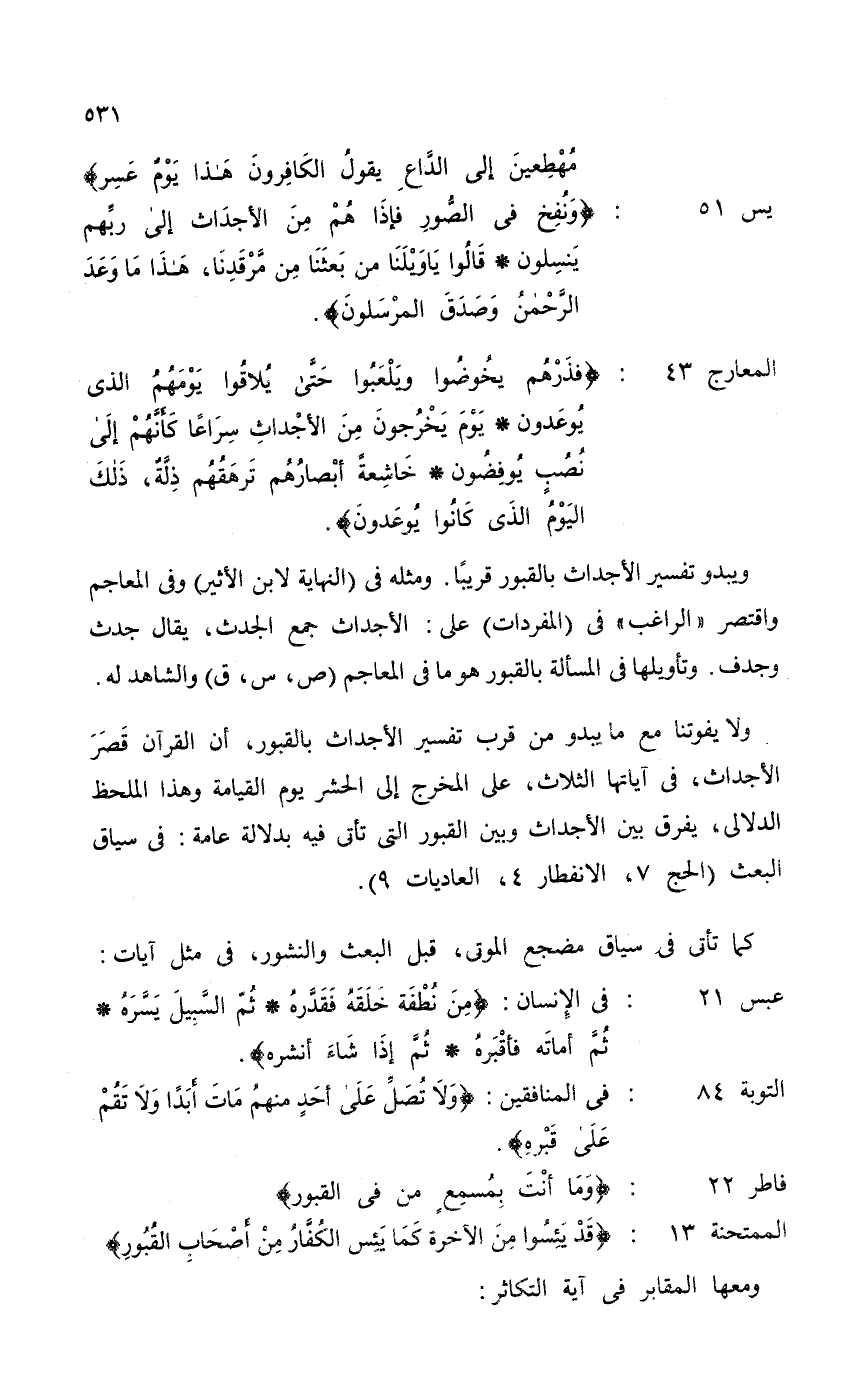 ٥٣١
مُهْطِعينَ إلى الدَّاعِ يقولُ الكَافِرونَ هَـٰذا يَوْمٌ عَسِر﴾
يس ٥١ : ﴿وَنُفِخ فى الصُّورِ فإذَا هُمْ مِنَ الأجدَاث إلىٰ ربِّهم
يَنسِلون * قَالُوا يَاوَيْلَنَا من بَعثَنَا مِن مَّرْقَدِنَا، هَـٰذَا مَا وَعَدَ
الرَّحْمٰنُ وَصَدَقَ المرْسَلونَ﴾.
المعارج ٤٣ : ﴿فذَرْهُم يخُوضُوا ويَلْعَبُوا حَتَّىٰ يُلاقُوا يَوْمَهُمُ الذى
يُوعَدون * يَوْمَ يَخْرُجونَ مِنَ الأجْداثِ سِرَاعًا كَأَنَّهُمْ إلَىٰ
نُصُبٍ يُوفِضُون * خَاشِعةً أبْصارُهُم تَرهَقُهُم ذِلَّةٌ، ذَلٰكَ
اليَوْمُ الذَى كَانُوا يُوعَدونَ﴾.
ويبدو تفسير الأجداث بالقبور قريبًا. ومثله فى (النهاية لابن الأثير) وفى المعاجم
واقتصر «الراغب» فى (المفردات) على: الأجداث جمع الجدث، يقال جدث
وجدف. وتأويلها فى المسألة بالقبور هو ما فى المعاجم (ص، س، ق) والشاهد له.
ولا يفوتنا مع ما يبدو من قرب تفسير الأجداث بالقبور، أن القرآن قَصَرَ
الأجداث، فى آياتها الثلاث، على المخرج إلى الحشر يوم القيامة وهذا الملحظ
الدلالى، يفرق بين الأجداث وبين القبور التى تأتى فيه بدلالة عامة: فى سياق
البعث (الحج ٧، الانفطار ٤، العاديات ٩).
كما تأتى فى سياق مضجع الموتى، قبل البعث والنشور، فى مثل آيات:
عبس ٢١ : فى الإِنسان: ﴿مِنَ نُطْفَة خَلَقَهُ فَقَدَّرهُ * ثُمّ السَّبِيلَ يَسَّرَهُ *
ثُمَّ أماتَه فأقْبَرهُ * ثُمَّ إذَا شَاءَ أنشره﴾.
التوبة ٨٤ : فى المنافقين: ﴿وَلَا تُصَلِّ عَلَىٰ أحَدٍ منهمُ مَاتَ أَبَدًا وَلَا تَقُمْ
عَلَىٰ قَبْرِهِ﴾.
فاطر ٢٢ : ﴿وَمَا أنْتَ بِمُسمِعٍ من فى القبور﴾
الممتحنة ١٣ : ﴿قَدْ يَئِسُوا مِنَ الآخرة كَمَا يَئِس الكُفَّارُ مِنْ أَصْحَابِ القُبُورِ﴾
ومعها المقابر فى آية التكاثر: